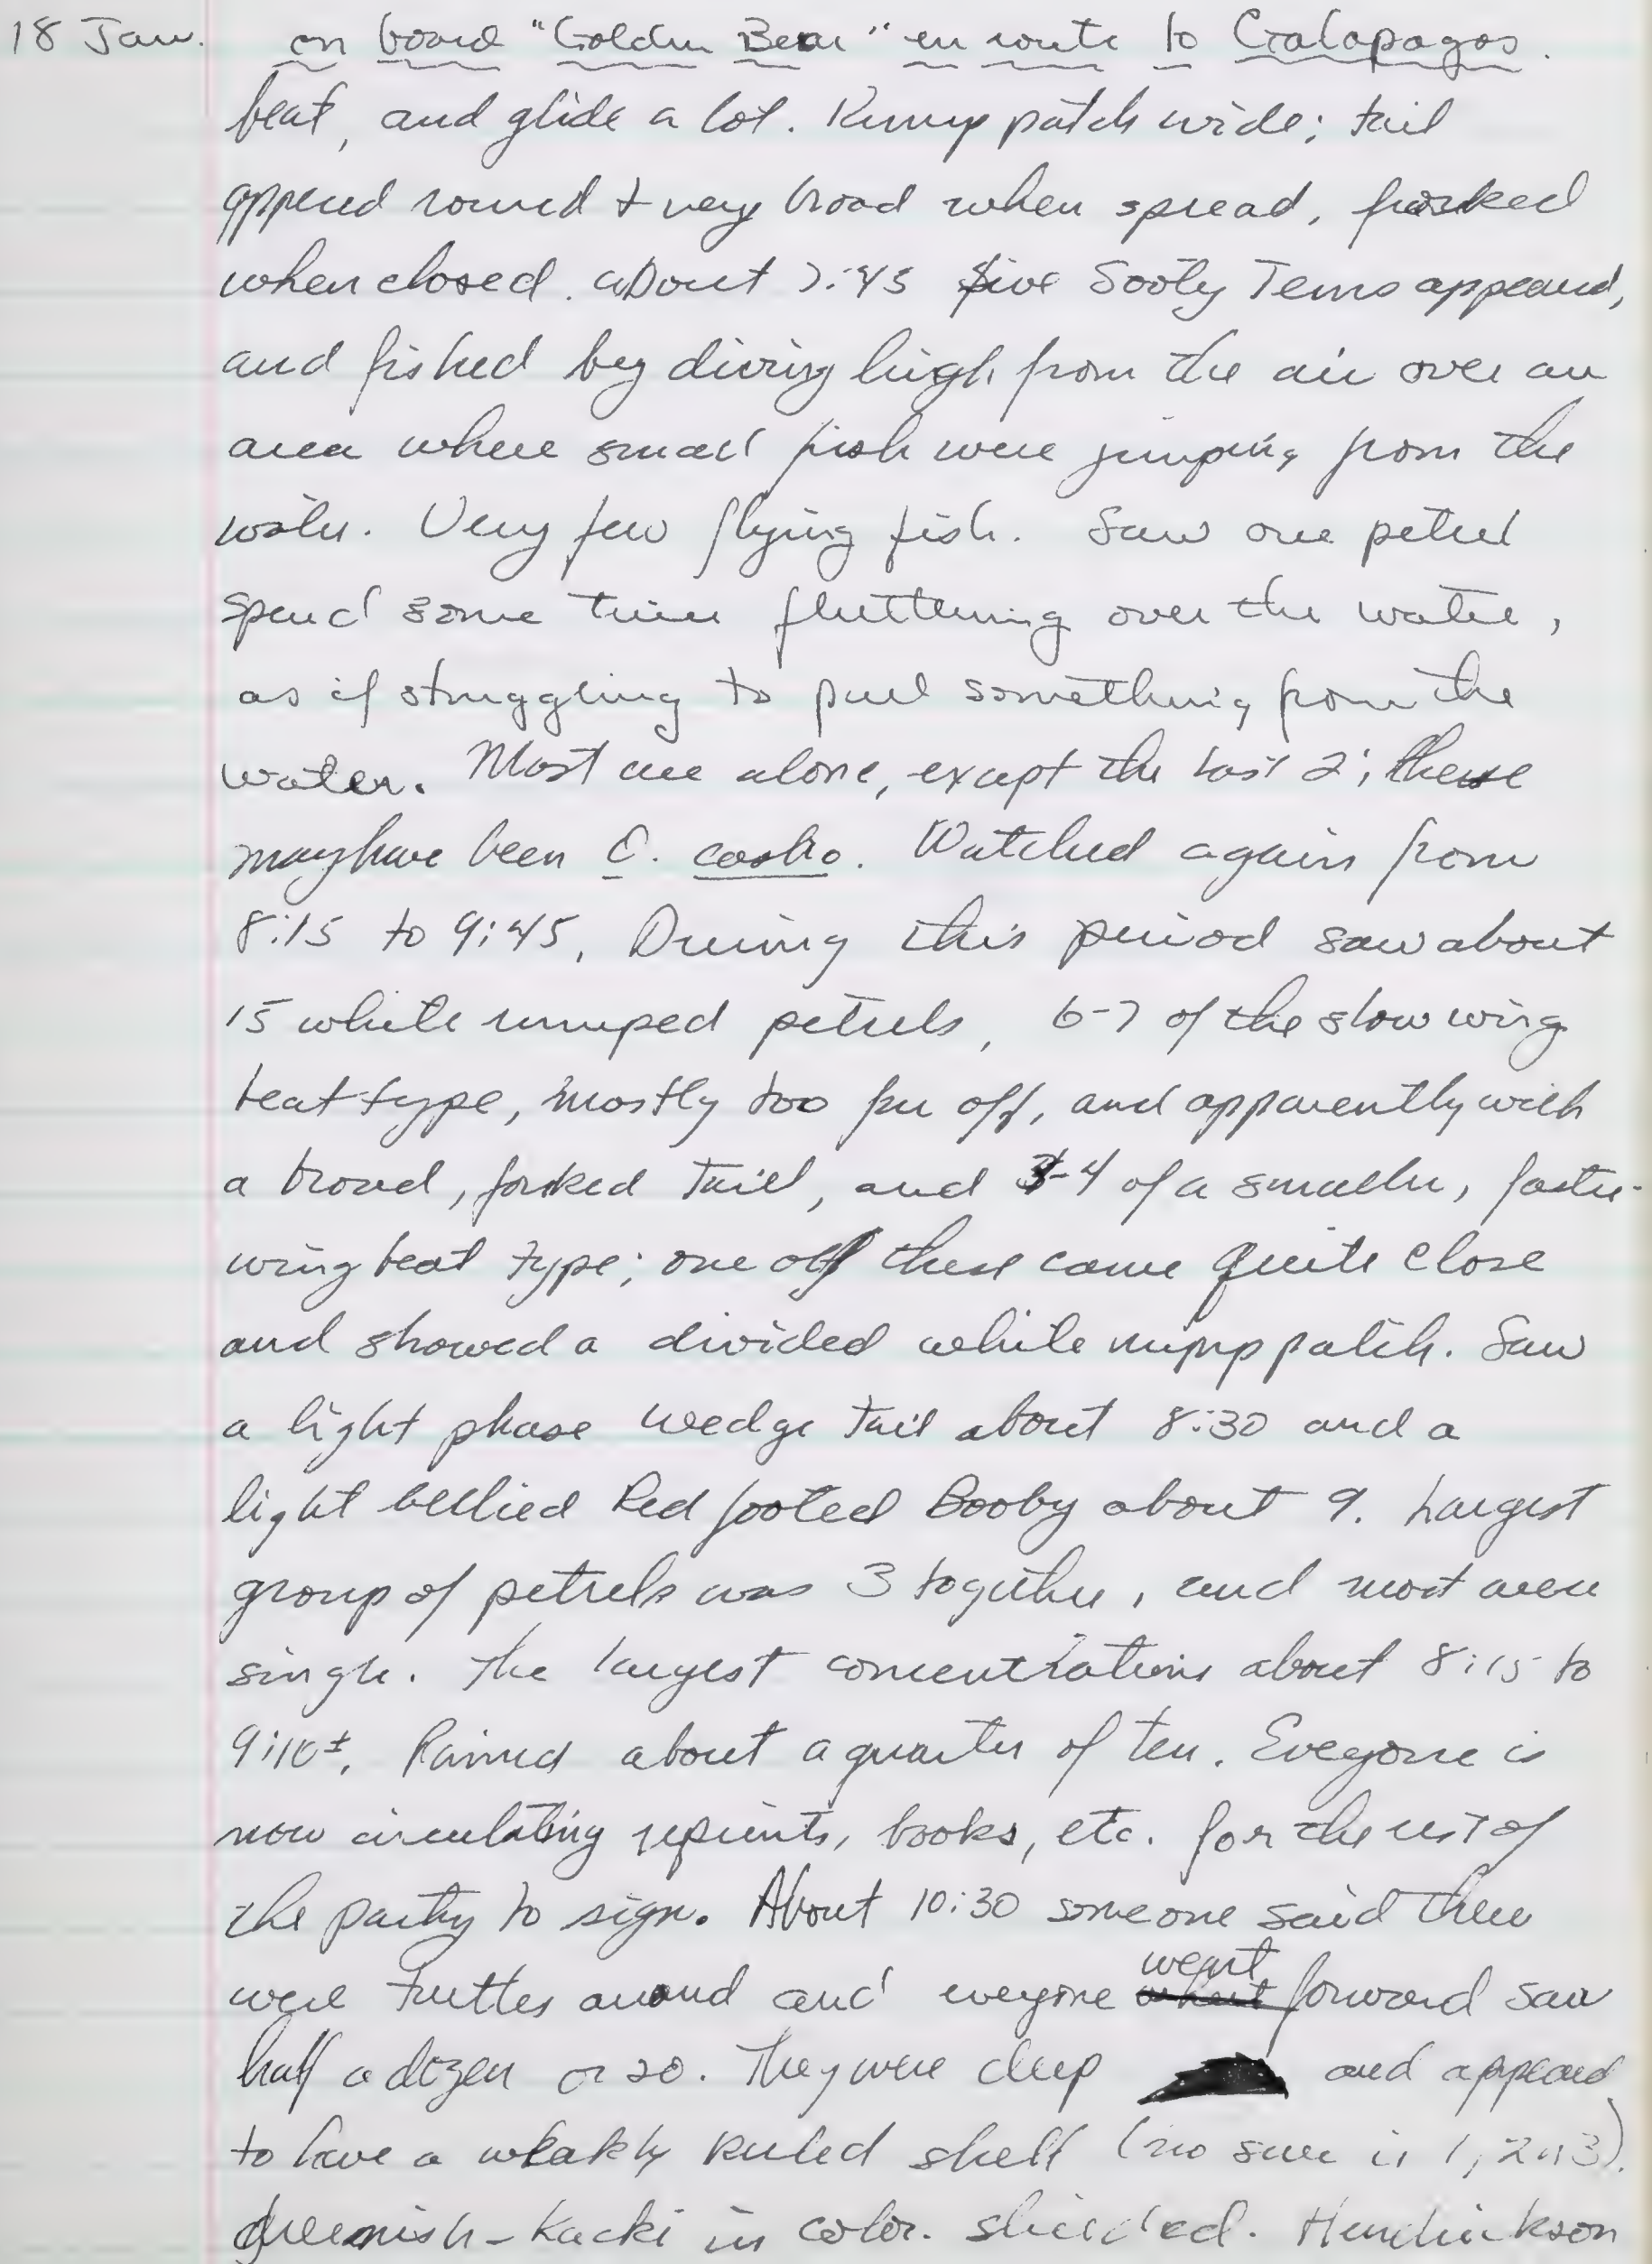 18 Jan. on board "Golden Bear" en route to Galapagos.
beat, and glide a lot. Rump patch wide; tail
appeared round + very broad when spread, forked
when closed. About 7:45 five Sooty Terns appeared,
and fished by diving high from the air over an
area where small fish were jumping from the
water. Very few flying fish. Saw one petrel
spend some time fluttering over the water,
as if struggling to pull something from the
water. Most are alone, except the last 2; these
may have been O. castro. Watched again from
8:15 to 9:45. During this period saw about
15 white rumped petrels, 6-7 of the slow wing
beat type, mostly too far off, and apparently with
a broad, forked tail, and 3-4 of a smaller, faster-
wing beat type; one of these came quite close
and showed a divided white rump patch. Saw
a light phase wedge tail about 8:30 and a
light bellied Red footed Booby about 9. Largest
group of petrels was 3 together, and most were
single. The largest concentrations about 8:15 to
9:10±. Rained about a quarter of ten. Everyone is
now circulating reprints, books, etc. for the rest of
the party to sign. About 10:30 someone said there
were turtles around and everyone went forward saw
half a dozen or so. They were deep and appeared
to have a weakly keeled shell (no sure is 1, 2 or 3).
Greenish-Kacki in color. shielded. Hendrickson